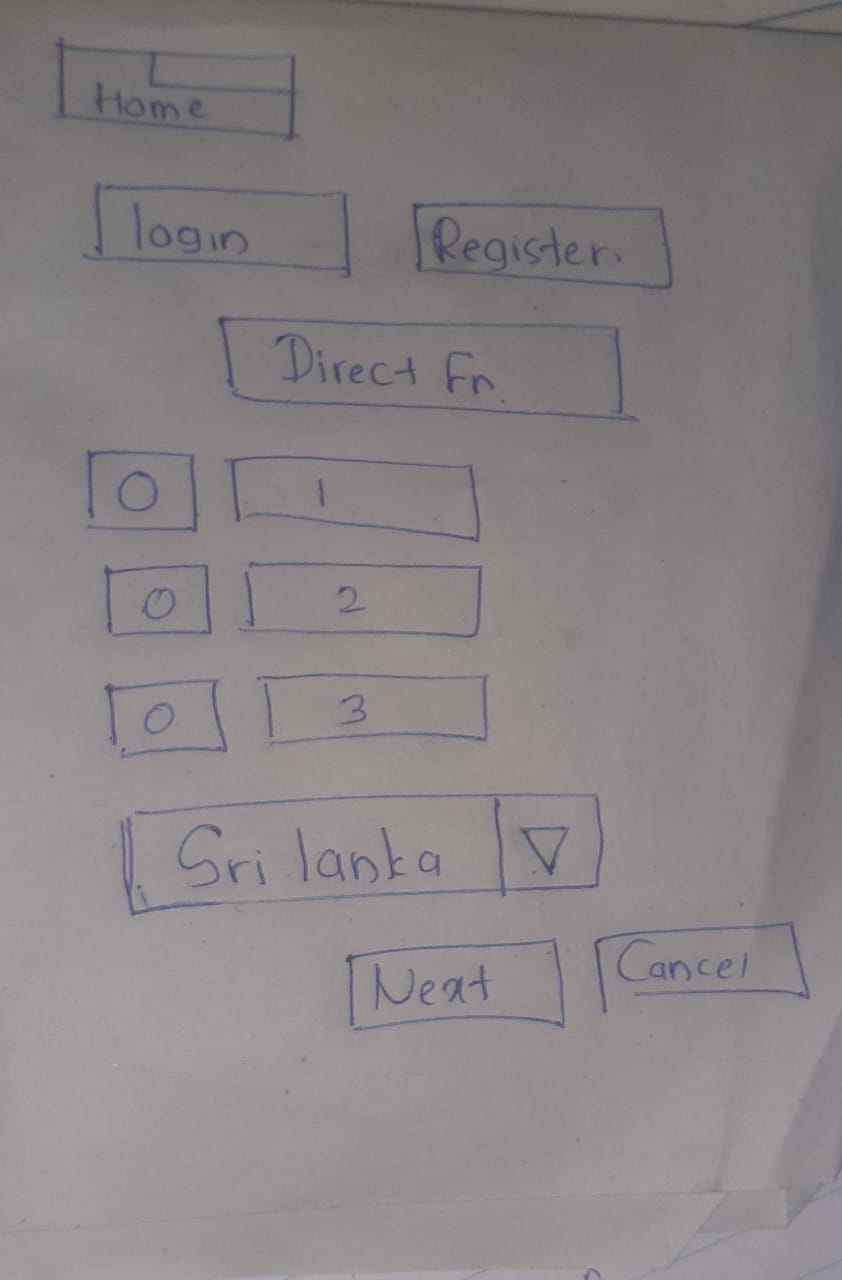 Home
login Register.
Direct Fn.
1
2
3
Sri lanka
Next Cancel